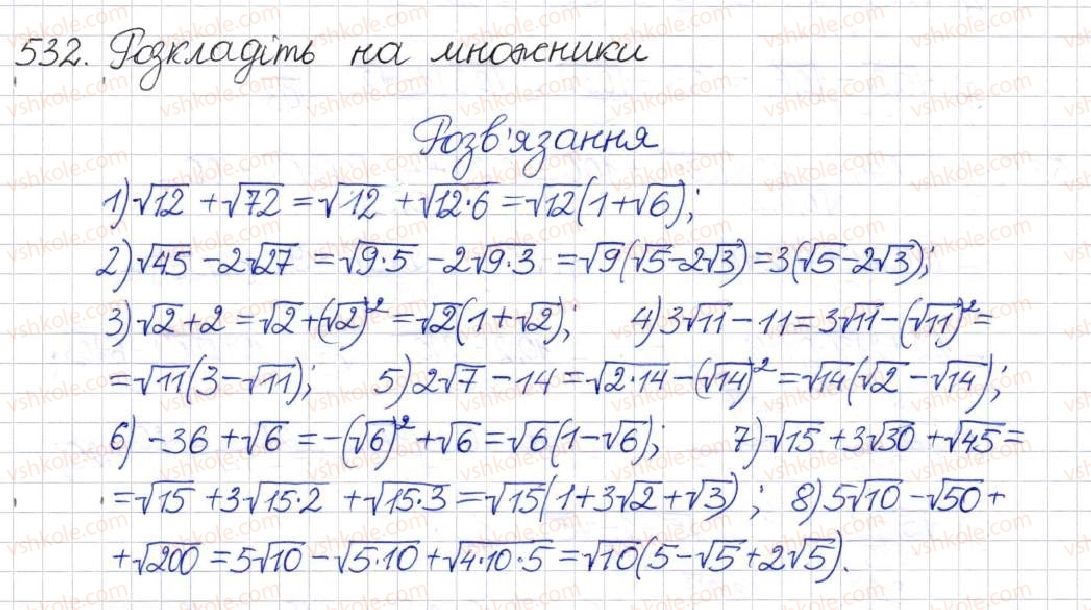 532. Розкладіть на множники
Розв'язання
1) √12 + √72 = √12 + √12·6 = √12(1+√6);
2) √45 - 2√27 = √9·5 - 2√9·3 = √9(√5-2√3) = 3(√5-2√3);
3) √2 + 2 = √2 + (√2)² = √2(1+√2); 4) 3√11 - 11 = 3√11 - (√11)² =
= √11(3-√11); 5) 2√7 - 14 = √2·14 - (√14)² = √14(√2 - √14);
6) -36 + √6 = -(√6)² + √6 = √6(1-√6); 7) √15 + 3√30 + √45 =
= √15 + 3√15·2 + √15·3 = √15(1+3√2+√3); 8) 5√10 - √50 +
+ √200 = 5√10 - √5·10 + √4·10·5 = √10(5-√5+2√5).